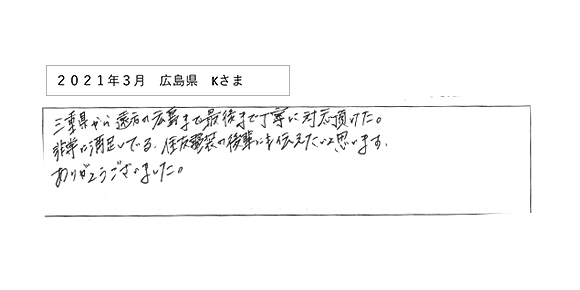 2021年3月 広島県 Kさま
三重県から遠方の広島まで最後まで丁寧に対応頂けた。
非常に満足している。住友電装の後輩にも伝えたいと思います。
ありがとうございました。